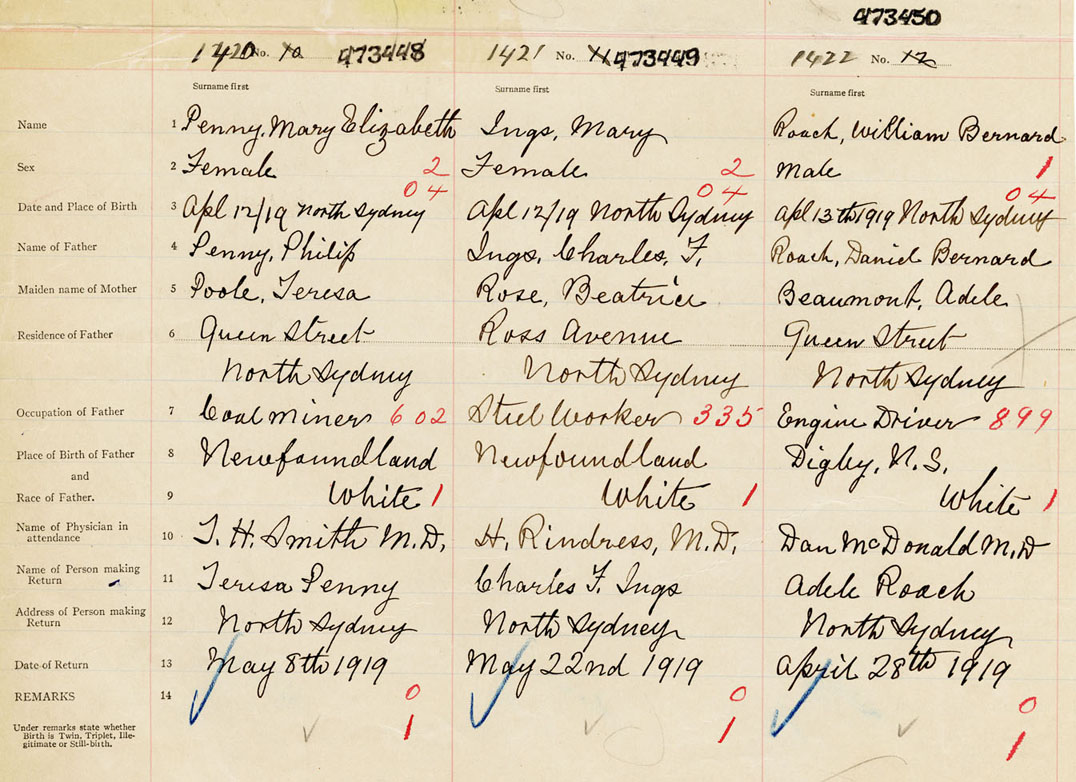 473450
1420 No. 10 473448 1421 No. 11 473449 1422 No. 12
Surname first Surname first Surname first
Name 1 Penny, Mary Elizabeth Ings, Mary Roach, William Bernard
Sex 2 Female 2 Female 2 Male 1
04 04 04
Date and Place of Birth 3 Apl 12/19 North Sydney Apl 12/19 North Sydney Apl 13th 1919 North Sydney
Name of Father 4 Penny, Philip Ings, Charles, F. Roach, Daniel Bernard
Maiden name of Mother 5 Poole, Teresa Rose, Beatrice Beaumont, Adele
Residence of Father 6 Queen Street Ross Avenue Queen Street
North Sydney North Sydney North Sydney
Occupation of Father 7 Coal miner 602 Steel Worker 335 Engine Driver 899
Place of Birth of Father 8 Newfoundland Newfoundland Digby, N.S.
and
Race of Father. 9 White 1 White 1 White 1
Name of Physician in
attendance 10 T. H. Smith M.D. H. Rindress, M.D. Dan McDonald M.D
Name of Person making
Return 11 Teresa Penny Charles F. Ings Adele Roach
Address of Person making
Return 12 North Sydney North Sydney North Sydney
Date of Return 13 May 8th 1919 May 22nd 1919 April 28th 1919
REMARKS 14 0 0 0
Under remarks state whether
Birth is Twin, Triplet, Ille-
gitimate or Still-birth.
1 1 1